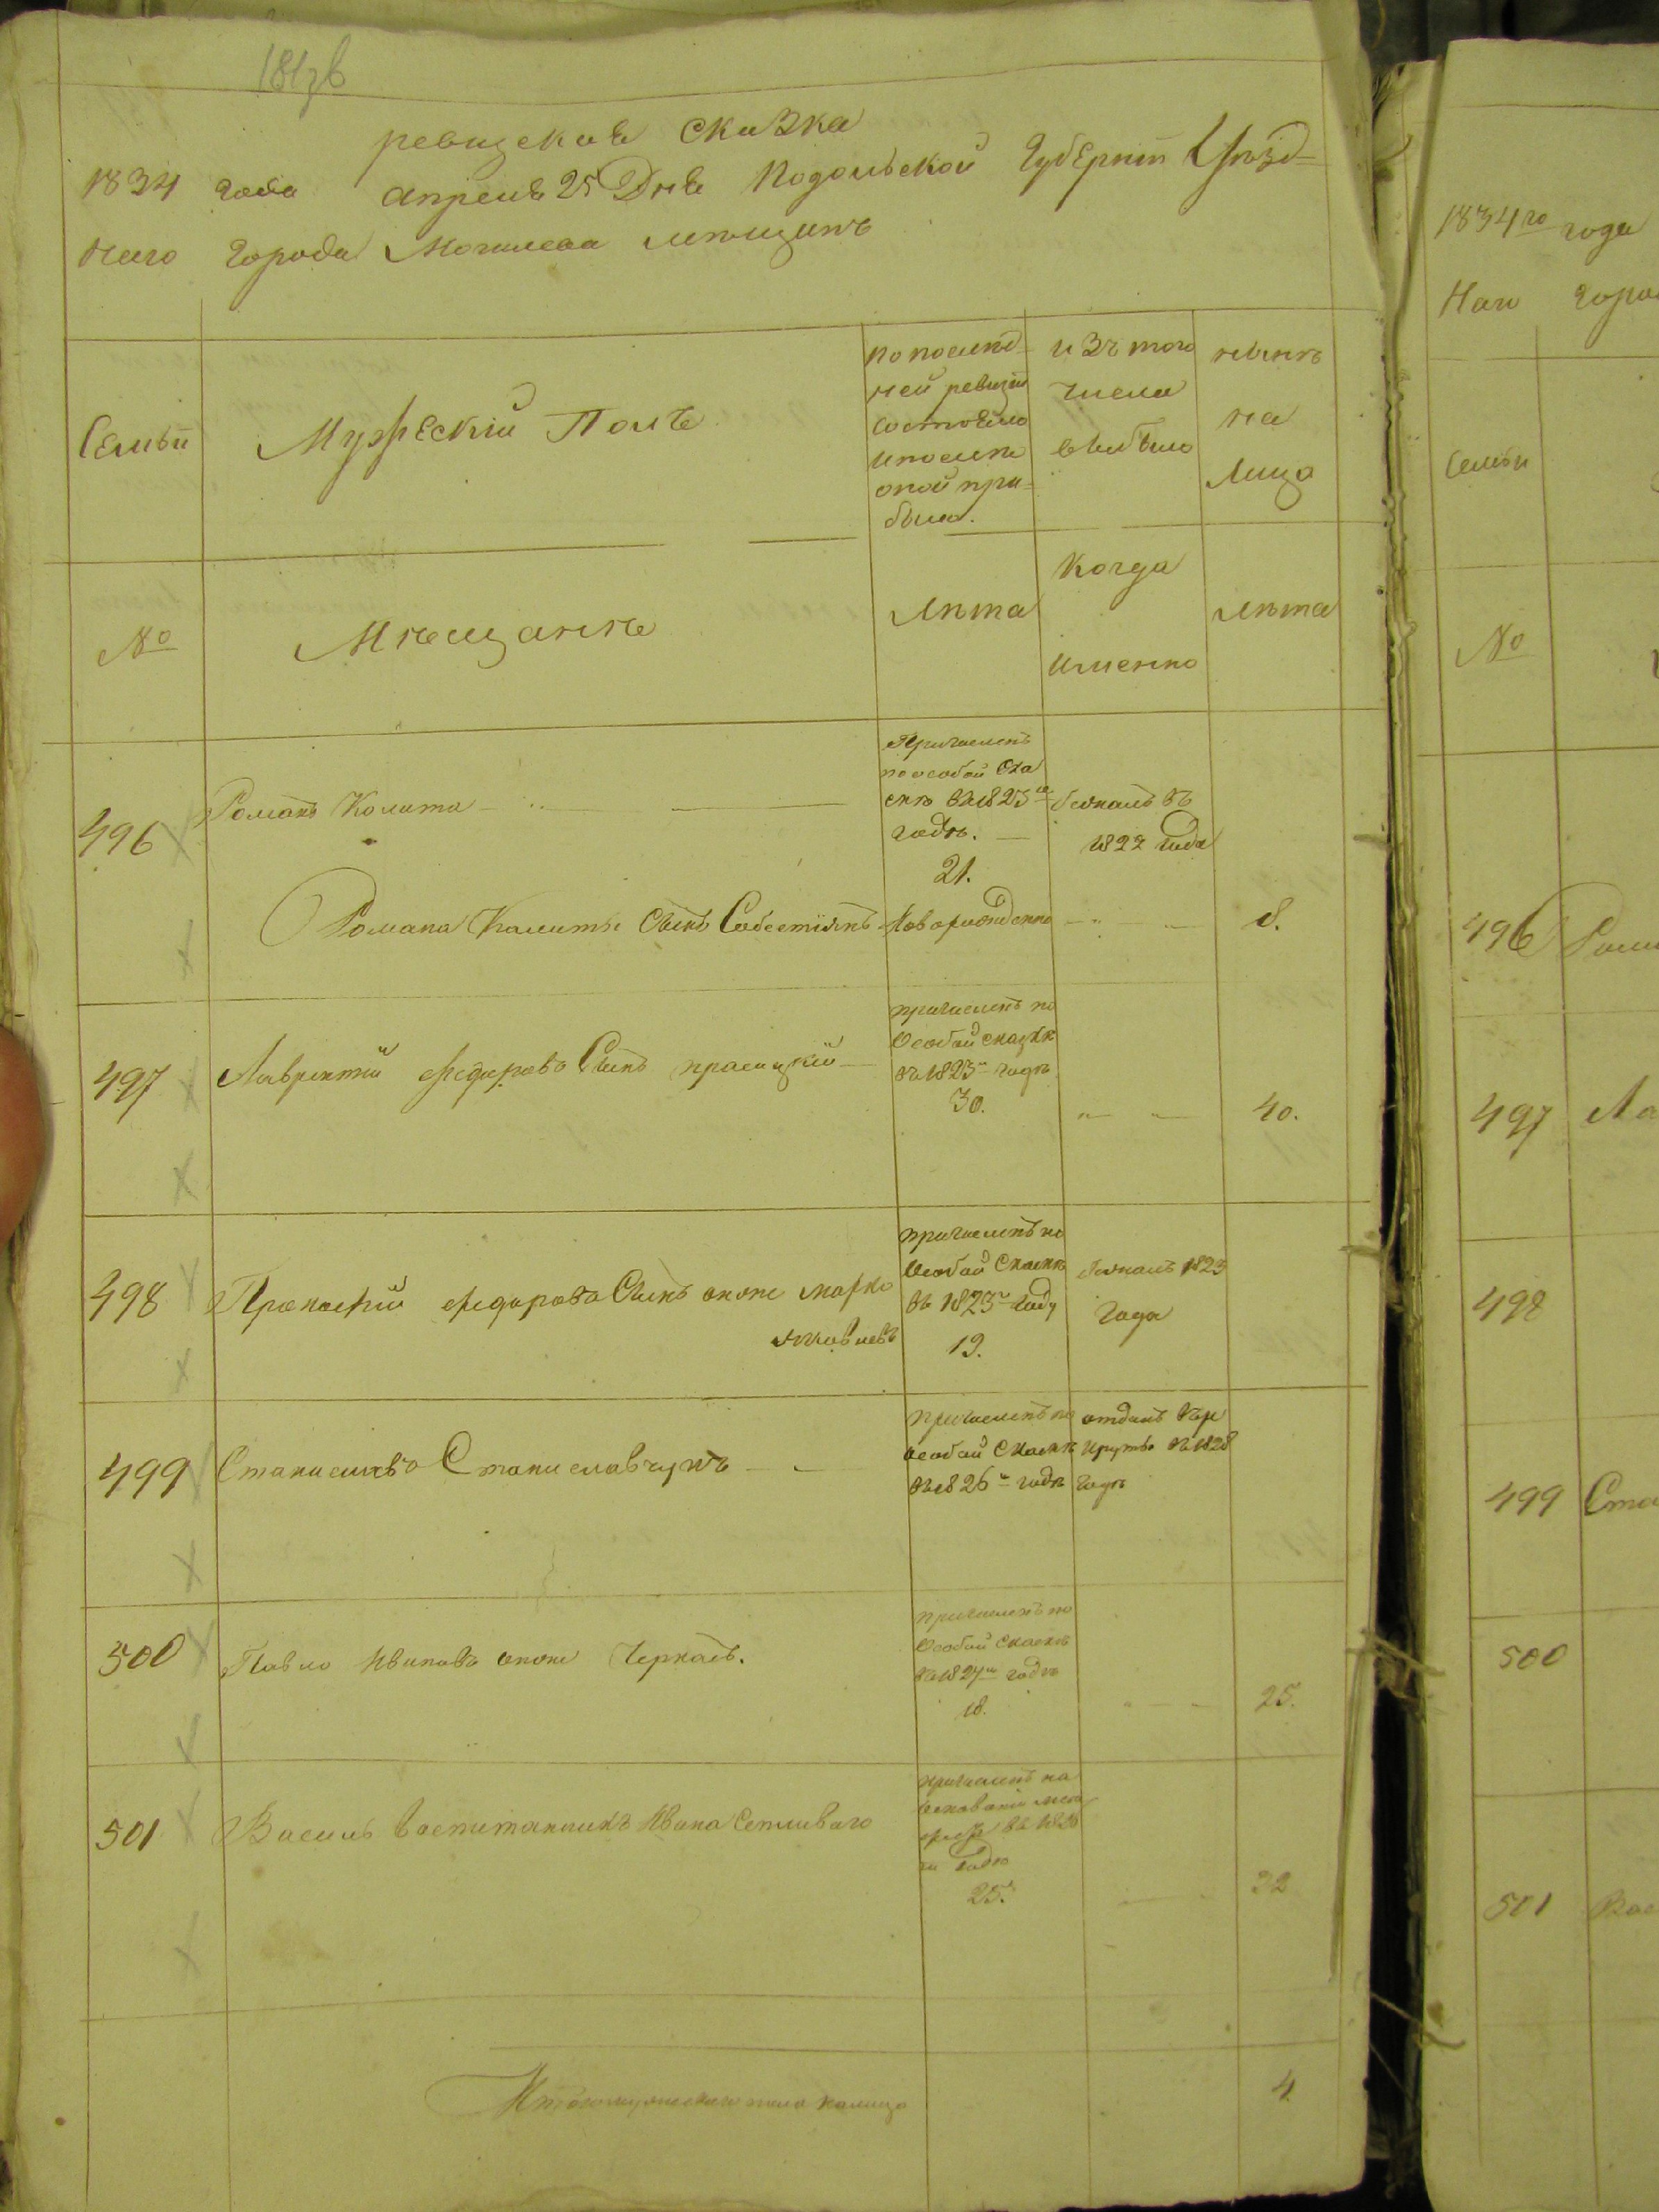 181зв
ревизская сказка
1834 года апреля 25 Дня Подольской Губернiи Уѣзд-
наго города Могилева мѣщанъ
Семьи
Мужескiй Полъ
по послѣд-
ней ревизiи
состояло
и послѣ
оной при-
было.
изъ того
числа
выбыло
нынѣ
на
лицо
№
Мѣщанѣ
Лѣта
Когда
именно
Лѣта
496
Романъ Колита
Причисленъ
по особой ска
скѣ въ 1823м
годѣ.
21.
бежалъ въ
1822 года
Романа Калиты Сынъ Собестiянъ
Новорожденно
8.
497
Лаврентiй Федорова Сынъ
причисленъ по
Особой сказкѣ
въ 1823м годѣ
30.
40.
498
Прокофiй Федорова Сынъ онже марко
причисленъ по
Особой Сказкѣ
въ 1823м году
19.
бежалъ 1823
года
499
Станиславъ Станиславчукъ
причисленъ по
особой Сказкѣ
въ 1826м годѣ
отданъ въ ре
круты въ 1828
годѣ
500
Павло Ивановъ онже Черкасъ.
причисленъ по
Особой Сказкѣ
въ 1827м годѣ
18.
25.
501
Василь воспитанникъ Ивана
причисленъ на
основанiи
въ 1828
м годѣ
25.
32
Итого мужескаго пола налицо
4
1834го года
Наго горо
Семьи
№
496 Рома
497 Ла
498
499 Ста
500
501 Вас